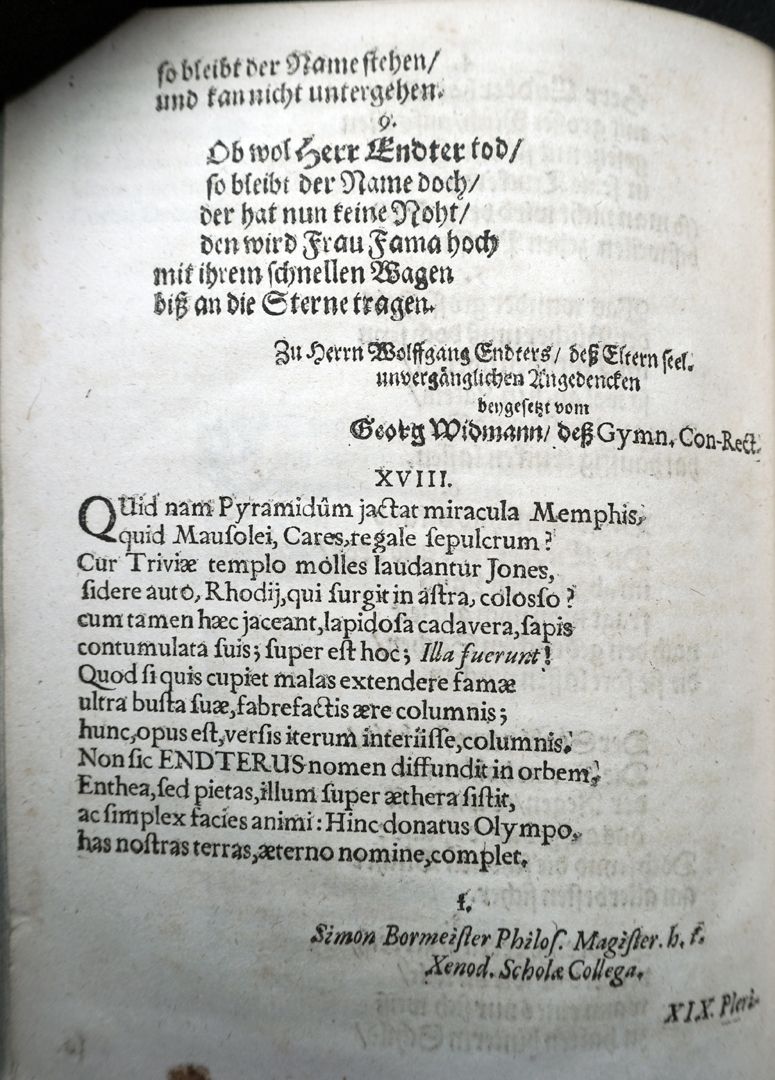 so bleibt der Name stehen/
und kan nicht untergehen.
9.
Ob wol Herr Endter tod/
so bleibt der Name doch/
der hat nun keine Noht/
den wird Frau Fama hoch
mit ihrem schnellen Wagen
biß an die Sterne tragen.
Zu Herrn Wolffgang Endters/ deß Eltern seel.
unvergänglichen Angedencken
beygesetzt vom
Georg Widmann/ deß Gymn. Con-Rect.
XVIII.
QUid nam Pyramidûm jactat miracula Memphis,
quid Mausolei, Cares, regale sepulcrum?
Cur Triviæ templo molles laudantur Jones,
sidere aut ô, Rhodij, qui surgit in astra, colosso?
cum tamen hæc jaceant, lapidosa cadavera, sapis
contumulata suis; super est hoc; Illa fuerunt!
Quod si quis cupiet malas extendere famæ
ultra busta suæ, fabrefactis ære columnis;
hunc, opus est, versis iterum interiisse, columnis.
Non sic ENDTERUS nomen diffundit in orbem,
Enthea, sed pietas, illum super æthera sistit,
ac simplex facies animi: Hinc donatus Olympo,
has nostras terras, æterno nomine, complet.
f.
Simon Bormeister Philos. Magister. h. t.
Xenod. Scholæ Collega.
XIX. Pleri-